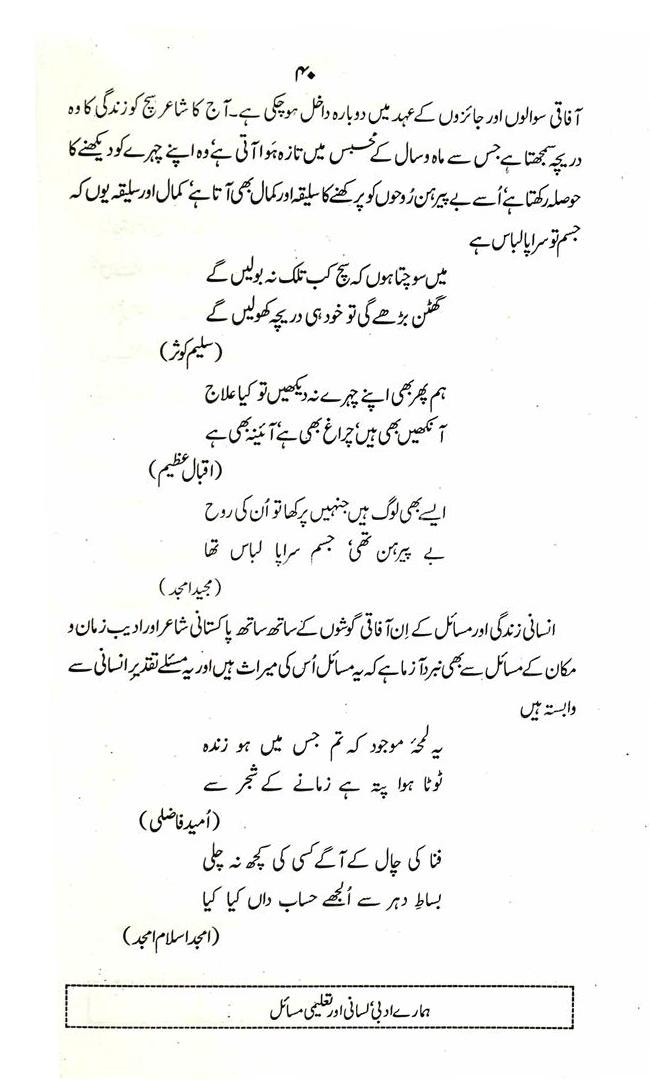 ۴۰
آفاقی سوالوں اور جائزوں کے عہد میں دوبارہ داخل ہوچکی ہے۔ آج کا شاعر سچ کو زندگی کا وہ
دریچہ سمجھتا ہے جس سے ماہ و سال کے حبس میں تازہ ہَوا آتی ہے‘ وہ اپنے چہرے کو دیکھنے کا
حوصلہ رکھتا ہے‘ اُسے بے پیرہن رُوحوں کو پرکھنے کا سلیقہ اور کمال بھی آتا ہے‘ کمال اور سلیقہ یوں کہ
جسم تو سراپا لباس ہے
میں سوچتا ہوں کہ سچ کب تلک نہ بولیں گے
گھٹن بڑھے گی تو خود ہی دریچہ کھولیں گے
(سلیم کوثر)
ہم پھر بھی اپنے چہرے نہ دیکھیں تو کیا علاج
آنکھیں بھی ہیں‘ چراغ بھی ہے‘ آئینہ بھی ہے
(اقبال عظیم)
ایسے بھی لوگ ہیں جنہیں پرکھا تو اُن کی روح
بے پیرہن تھی‘ جسم سراپا لباس تھا
(مجید امجد)
انسانی زندگی اور مسائل کے اِن آفاقی گوشوں کے ساتھ ساتھ پاکستانی شاعر اور ادیب زمان و
مکان کے مسائل سے بھی نبرد آزما ہے کہ یہ مسائل اُس کی میراث ہیں اور یہ مسئلے تقدیرِ انسانی سے
وابستہ ہیں
یہ لمحۂ موجود کہ تم جس میں ہو زندہ
ٹوٹا ہوا پتہ ہے زمانے کے شجر سے
(اُمید فاضلی)
فنا کی چال کے آگے کسی کی کچھ نہ چلی
بساطِ دہر سے اُلجھے حساب داں کیا کیا
(امجد اسلام امجد)
ہمارے ادبی‘ لسانی اور تعلیمی مسائل